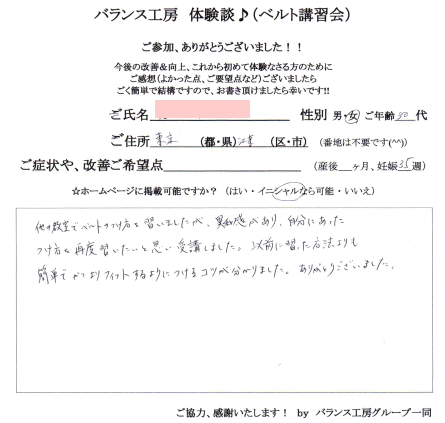 バランス工房 体験談♪(ベルト講習会)
ご参加、ありがとうございました！！
今後の改善&向上、これから初めて体験なさる方のために
ご感想(よかった点、ご要望点など)ございましたら
ごく簡単で結構ですので、お書き頂けましたら幸いです!!
ご氏名 性別 男・女 ご年齢 30 代
ご住所 東京 (都・県) 江東 (区・市) (番地は不要です(^^))
ご症状や、改善ご希望点 (産後 ヶ月、妊娠 35 週)
☆ホームページに掲載可能ですか？ (はい・イニシャルなら可能・いいえ)
他の教室でベルトのつけ方を習いましたが、違和感があり、自分にあった
つけ方を再度習いたいと思い受講しました。以前に習った方法よりも
簡単でかつよりフィットするようにつけるコツが分かりました。ありがとうございました。
ご協力、感謝いたします！ by バランス工房グループ一同